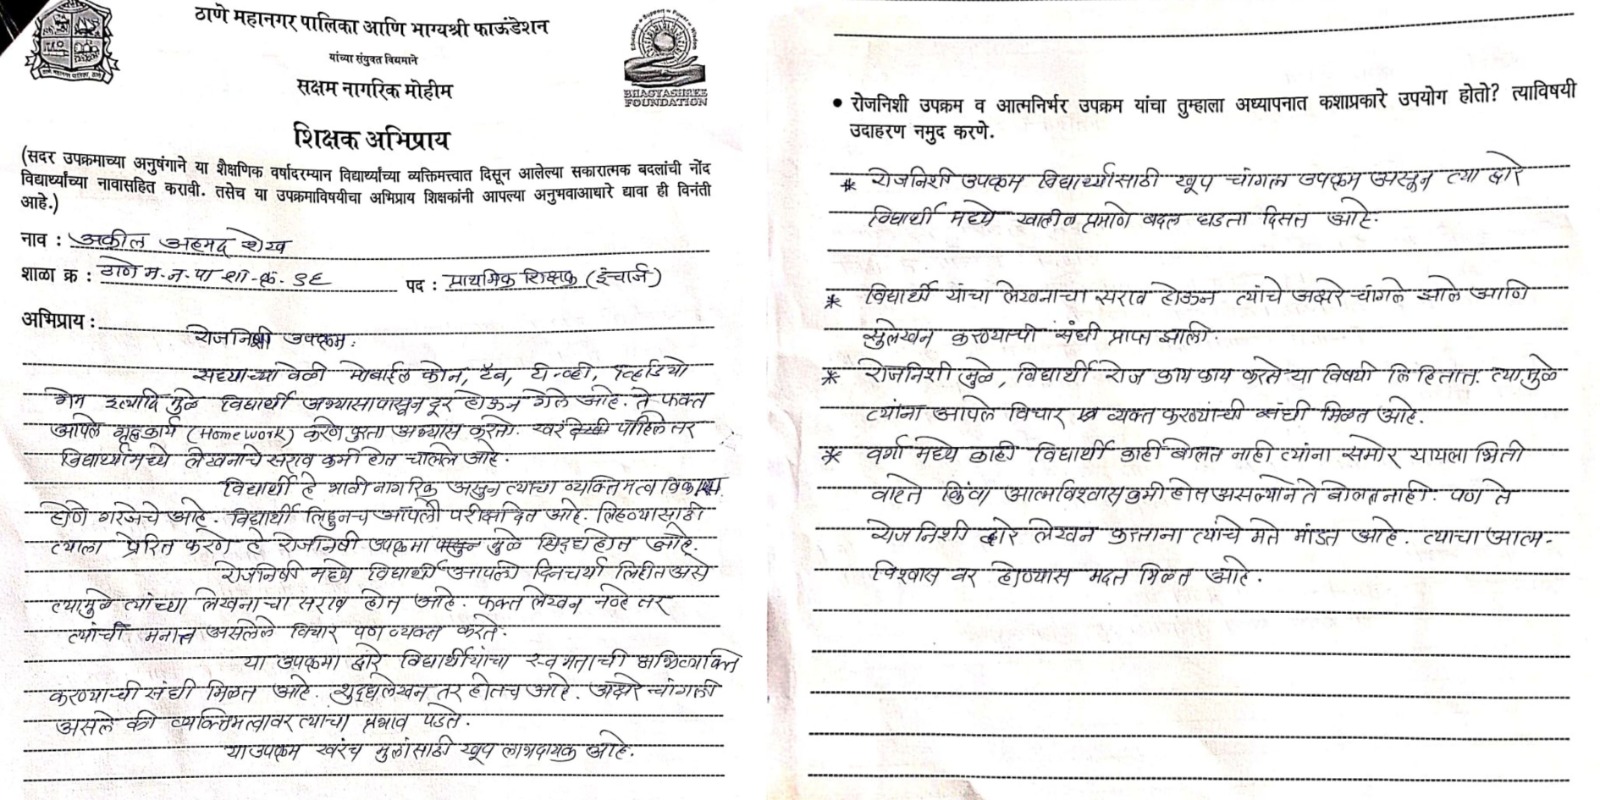 ठाणे महानगर पालिका आणि भाग्यश्री फाऊंडेशन
यांच्या संयुक्त विद्यमाने
सक्षम नागरिक मोहीम
BHAGYASHREE
FOUNDATION
शिक्षक अभिप्राय
(सदर उपक्रमाच्या अनुषंगाने या शैक्षणिक वर्षादरम्यान विद्यार्थ्यांच्या व्यक्तिमत्त्वात दिसून आलेल्या सकारात्मक बदलांची नोंद
विद्यार्थ्यांच्या नावासहित करावी. तसेच या उपक्रमाविषयीचा अभिप्राय शिक्षकांनी आपल्या अनुभवाआधारे द्यावा ही विनंती
आहे.)
नाव : अकील अहमद शेख
शाळा क्र : ठाणे म.न.पा शा.क्र. ९६ पद : प्राथमिक शिक्षक (इंचार्ज)
अभिप्राय :
रोजनिशी उपक्रम :
सध्याच्या वेळी मोबाईल फोन, टॅब, टी.व्ही, व्हिडियो
गेम इत्यादि मुळे विद्यार्थी अभ्यासापासून दूर होऊन गेले आहे. ते फक्त
आपले गृहकार्य (Home work) करणे पुरता अभ्यास करतो. खरं पाहिले तर
विद्यार्थ्यामध्ये लेखनाचे सराव कमी होत चालले आहे.
विद्यार्थी हे भावी नागरिक असुन त्याचा व्यक्तिमत्व विकास
होणे गरजेचे आहे. विद्यार्थी लिहूनच आपली परीक्षा देत आहे. लिहण्यासाठी
त्याला प्रेरित करणे हे रोजनिषी उपक्रमा मुळे सिद्ध होत आहे.
रोजनिषी मध्ये विद्यार्थी आपली दिनचर्या लिहीत असे
त्यामुळे त्यांच्या लेखनाचा सराव होत आहे. फक्त लेखन नव्हे तर
त्यांची मनात असलेले विचार पण व्यक्त करते.
या उपक्रमा द्वारे विद्यार्थीयांचा स्वमताची अभिव्यक्ति
करण्याची संधी मिळत आहे. शुद्धलेखन तर होतच आहे. अक्षरे चांगली
असले की व्यक्तिमत्वावर त्यांचा प्रभाव पडते.
या उपक्रम खरंच मुलांसाठी खूप लाभदायक आहे.
• रोजनिशी उपक्रम व आत्मनिर्भर उपक्रम यांचा तुम्हाला अध्यापनात कशाप्रकारे उपयोग होतो? त्याविषयी
उदाहरण नमुद करणे.
* रोजनिशी उपक्रम विद्यार्थ्यांसाठी खूप चांगला उपक्रम असून त्या द्वारे
विद्यार्थी मध्ये खालील प्रमाणे बदल घडता दिसत आहे.
* विद्यार्थी यांचा लेखनाचा सराव होऊन त्यांचे अक्षरे चांगले झाले आणि
सुलेखन करण्याची संधी प्राप्त झाली.
* रोजनिशी मुळे, विद्यार्थी रोज काय काय करते या विषयी लिहितात. त्यामुळे
त्यांना आपले विचार व्यक्त करण्यांची संधी मिळत आहे.
* वर्गा मध्ये काही विद्यार्थी काही बोलत नाही त्यांना समोर यायला भिती
वाटते किंवा आत्मविश्वास कमी होत असल्याने ते बोलत नाही. पण ते
रोजनिशी द्वारे लेखन करताना त्यांचे मते मांडत आहे. त्याचा आत्म-
विश्वास वर होण्यास मदत मिळत आहे.